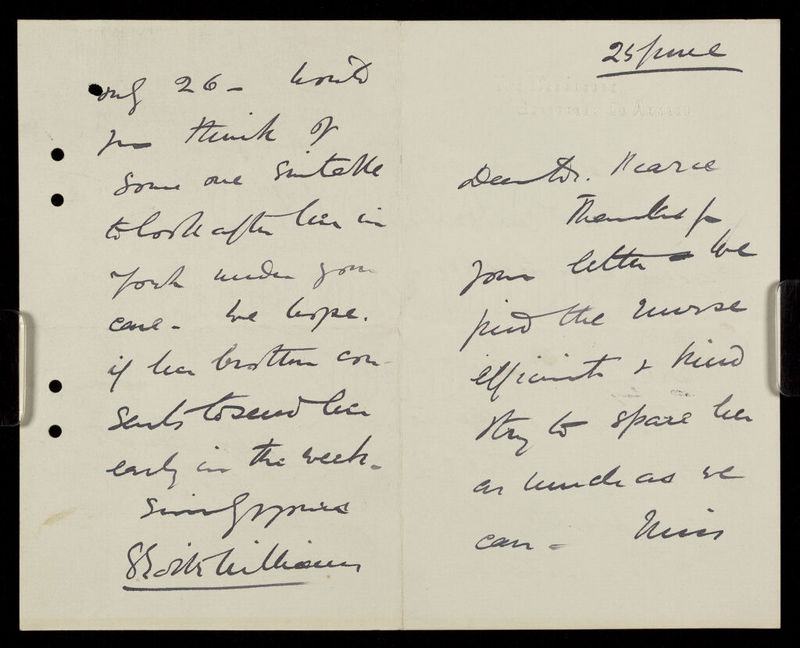 25 June
Dear Dr. Pearce
Thanks for
your letter - We
find the nurse
efficient & kind
& try to spare her
as much as we
can - Miss
only 26 - Would
you think of
some one suitable
to look after her in
York under your
care - We hope.
if her brother con-
sents to send her
early in the week -
Sincerely yours
Williams